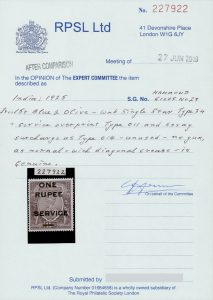 No. 227922
RPSL Ltd
41 Devonshire Place
London W1G 6JY
AFTER COMPARISON
Meeting of 27 JUN 2019
In the OPINION of THE EXPERT COMMITTEE the item
described as
India: 1925
S.G. No.
Blue & Olive - Single Star Type
+ Service overprint Type O11 and
surcharge as Type - unused - no gum,
as normal - with diagonal crease - is
genuine.
227922
ONE
RUPEE
SERVICE
On behalf of the committee
Submitted by
RPSL Ltd. (Company Number 01654658) is a wholly owned subsidiary of
The Royal Philatelic Society London